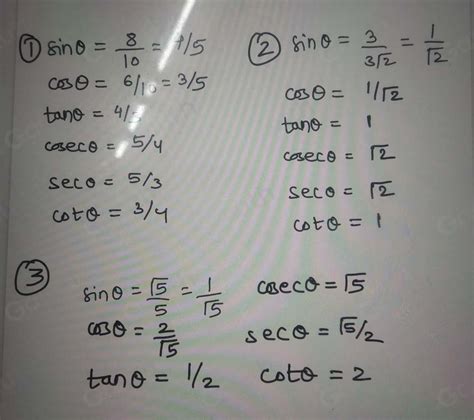 ① sinθ = 8/10 = 4/5
cosθ = 6/10 = 3/5
tanθ = 4/3
cosecθ = 5/4
secθ = 5/3
cotθ = 3/4
② sinθ = 3/3√2 = 1/√2
cosθ = 1/√2
tanθ = 1
cosecθ = √2
secθ = √2
cotθ = 1
③
sinθ = √5/5 = 1/√5
cosθ = 2/√5
tanθ = 1/2
cosecθ = √5
secθ = √5/2
cotθ = 2